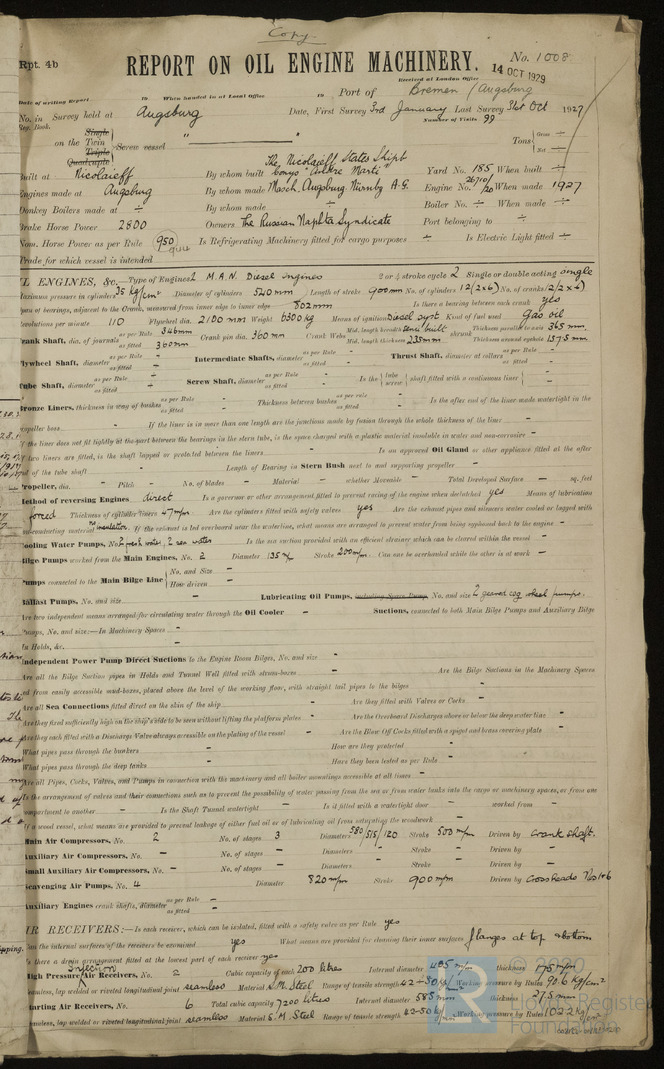 Copy
Rpt. 4b
REPORT ON OIL ENGINE MACHINERY.
No. 1008
Received at London Office
14 OCT 1929
Date of writing Report
When handed in at Local Office
Port of Bremen / Augsburg
No. in Survey held at Augsburg
Date, First Survey 3rd January Last Survey 31st Oct 1927
Reg. Book.
Number of Visits 99
on the Single Twin Triple Quadruple Screw vessel
Tons Gross ÷ Net ÷
Built at Nicolaieff By whom built The Nicolaieff States Shipb Comys Andre Marti Yard No. 185 When built ÷
Engines made at Augsburg By whom made Masch. Augsburg Nürnbg A.G. Engine No. When made 1927
Donkey Boilers made at ÷ By whom made ÷ Boiler No. ÷ When made ÷
Brake Horse Power 2800 Owners The Russian Naphta Syndicate Port belonging to ÷
Nom. Horse Power as per Rule 950 Is Refrigerating Machinery fitted for cargo purposes ÷ Is Electric Light fitted ÷
Trade for which vessel is intended
OIL ENGINES, &c.—Type of Engines 2 M.A.N. Diesel engines 2 or 4 stroke cycle 2 Single or double acting single
Maximum pressure in cylinders 35 kg/cm² Diameter of cylinders 540 mm Length of stroke 900 mm No. of cylinders 12 (2x6) No. of cranks 12 (2x6)
Span of bearings, adjacent to the Crank, measured from inner edge to inner edge 802 mm Is there a bearing between each crank yes
Revolutions per minute 110 Flywheel dia. 2100 mm Weight 6300 kg Means of ignition Diesel syst Kind of fuel used Gas oil
Crank Shaft, dia. of journals as per Rule 346 mm as fitted 360 mm Crank pin dia. 360 mm Crank Webs Mid. length breadth semi built Mid. length thickness 235 mm shrunk Thickness parallel to axis 365 mm Thickness around eyehole 157.5 mm
Flywheel Shaft, diameter as per Rule - as fitted - Intermediate Shafts, diameter as per Rule - as fitted - Thrust Shaft, diameter at collars as per Rule - as fitted -
Tube Shaft, diameter as per Rule - as fitted - Screw Shaft, diameter as per Rule - as fitted - Is the tube screw shaft fitted with a continuous liner -
Bronze Liners, thickness in way of bushes as per Rule - as fitted - Thickness between bushes as per rule - as fitted - Is the after end of the liner made watertight in the
propeller boss - If the liner is in more than one length are the junctions made by fusion through the whole thickness of the liner -
If the liner does not fit tightly at the part between the bearings in the stern tube, is the space charged with a plastic material insoluble in water and non-corrosive -
If two liners are fitted, is the shaft lapped or protected between the liners - Is an approved Oil Gland or other appliance fitted at the after
end of the tube shaft - Length of Bearing in Stern Bush next to and supporting propeller -
Propeller, dia. - Pitch - No. of blades - Material - whether Moveable - Total Developed Surface - sq. feet
Method of reversing Engines direct Is a governor or other arrangement fitted to prevent racing of the engine when declutched yes Means of lubrication
forced Thickness of cylinder liners 47 mm. Are the cylinders fitted with safety valves yes Are the exhaust pipes and silencers water cooled or lagged with
non-conducting material no insulation. If the exhaust is led overboard near the waterline, what means are arranged to prevent water from being syphoned back to the engine -
Cooling Water Pumps, No. 2 fresh water, 2 sea water Is the sea suction provided with an efficient strainer which can be cleared within the vessel -
Bilge Pumps worked from the Main Engines, No. 2 Diameter 135 mm Stroke 200 mm. Can one be overhauled while the other is at work -
Pumps connected to the Main Bilge Line No. and Size - How driven -
Ballast Pumps, No. and size - Lubricating Oil Pumps, including Spare Pump, No. and size 2 geared cog wheel pumps.
Are two independent means arranged for circulating water through the Oil Cooler - Suctions, connected to both Main Bilge Pumps and Auxiliary Bilge
Pumps, No. and size:—In Machinery Spaces -
In Holds, &c. -
Independent Power Pump Direct Suctions to the Engine Room Bilges, No. and size -
Are all the Bilge Suction pipes in Holds and Tunnel Well fitted with strum-boxes - Are the Bilge Suctions in the Machinery Spaces
led from easily accessible mud-boxes, placed above the level of the working floor, with straight tail pipes to the bilges -
Are all Sea Connections fitted direct on the skin of the ship - Are they fitted with Valves or Cocks -
Are they fixed sufficiently high on the ship's side to be seen without lifting the platform plates - Are the Overboard Discharges above or below the deep water line -
Are they each fitted with a Discharge Valve always accessible on the plating of the vessel - Are the Blow Off Cocks fitted with a spigot and brass covering plate -
What pipes pass through the bunkers - How are they protected -
What pipes pass through the deep tanks - Have they been tested as per Rule -
Are all Pipes, Cocks, Valves, and Pumps in connection with the machinery and all boiler mountings accessible at all times -
Is the arrangement of valves and their connections such as to prevent the possibility of water passing from the sea or from water tanks into the cargo or machinery spaces, or from one
compartment to another - Is the Shaft Tunnel watertight - Is it fitted with a watertight door - worked from -
If a wood vessel, what means are provided to prevent leakage of either fuel oil or of lubricating oil from saturating the woodwork -
Main Air Compressors, No. 2 No. of stages 3 Diameters 580/515/120 Stroke 500 mm Driven by crank shaft.
Auxiliary Air Compressors, No. - No. of stages - Diameters - Stroke - Driven by -
Small Auxiliary Air Compressors, No. - No. of stages - Diameters - Stroke - Driven by -
Scavenging Air Pumps, No. 4 Diameter 820 mm Stroke 900 mm Driven by Crossheads Nos 1+6
Auxiliary Engines crank shafts, diameter as per Rule - as fitted -
AIR RECEIVERS:—Is each receiver, which can be isolated, fitted with a safety valve as per Rule yes
Can the internal surfaces of the receivers be examined yes What means are provided for cleaning their inner surfaces flanges at top & bottom
Is there a drain arrangement fitted at the lowest part of each receiver yes
High Pressure Injection Air Receivers, No. 2 Cubic capacity of each 200 litres Internal diameter 485 mm thickness
Seamless, lap welded or riveted longitudinal joint seamless Material S.M. Steel Range of tensile strength 42-50 kg/mm² Working pressure by Rules 90.6 kg/cm²
Starting Air Receivers, No. 6 Total cubic capacity 7200 litres Internal diameter 585 mm thickness 37.5 mm
Seamless, lap welded or riveted longitudinal joint seamless Material S.M. Steel Range of tensile strength 42-50 kg/mm² Working pressure by Rules 102.2 kg/cm²
© 2020
Lloyd's Register
Foundation